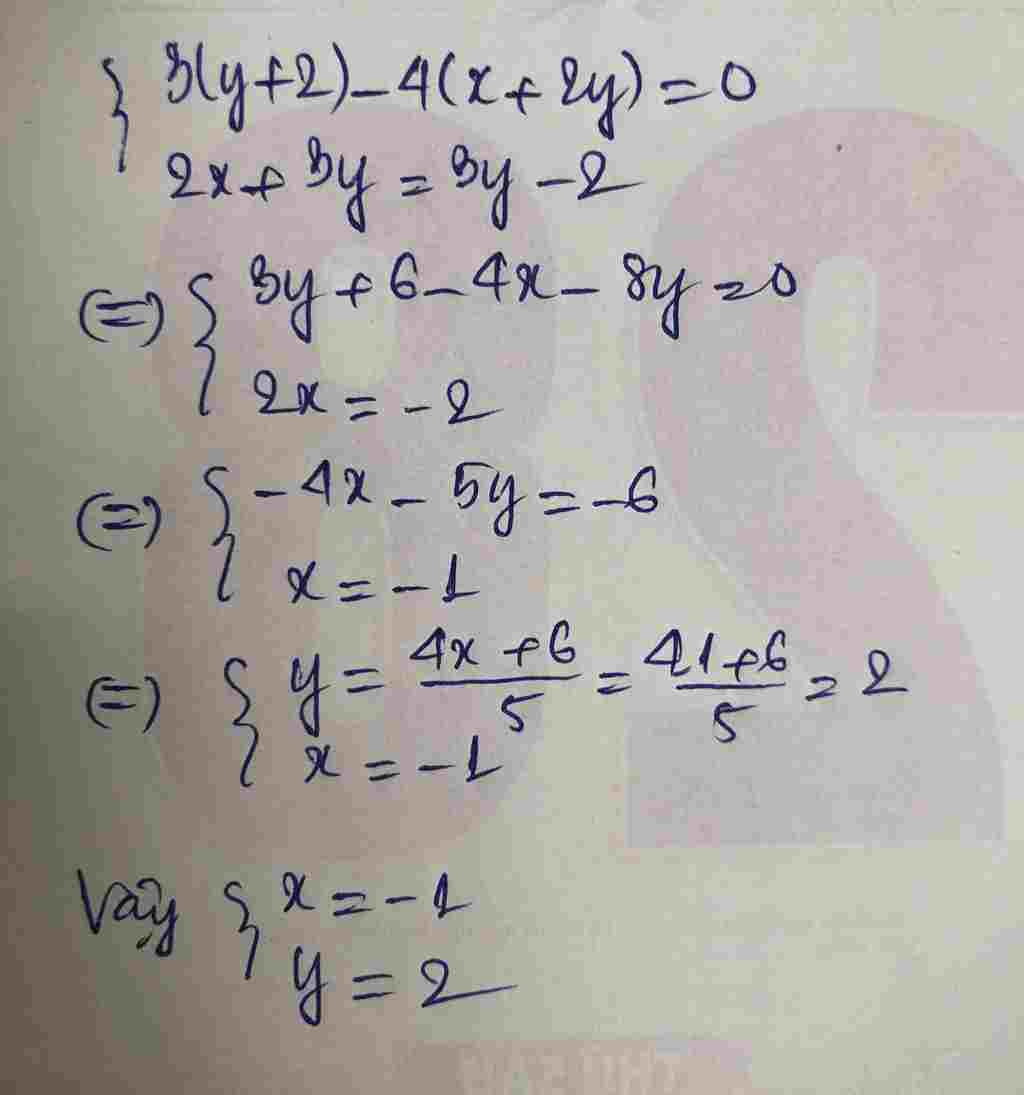 { 3(y+2) - 4(x + 2y) = 0
2x + 3y = 3y - 2
(=) { 3y + 6 - 4x - 8y = 0
2x = -2
(=) { -4x - 5y = -6
x = -1
(=) { y = 4x + 6 / 5 = 4 1 + 6 / 5 = 2
x = -1
Vậy { x = -1
y = 2